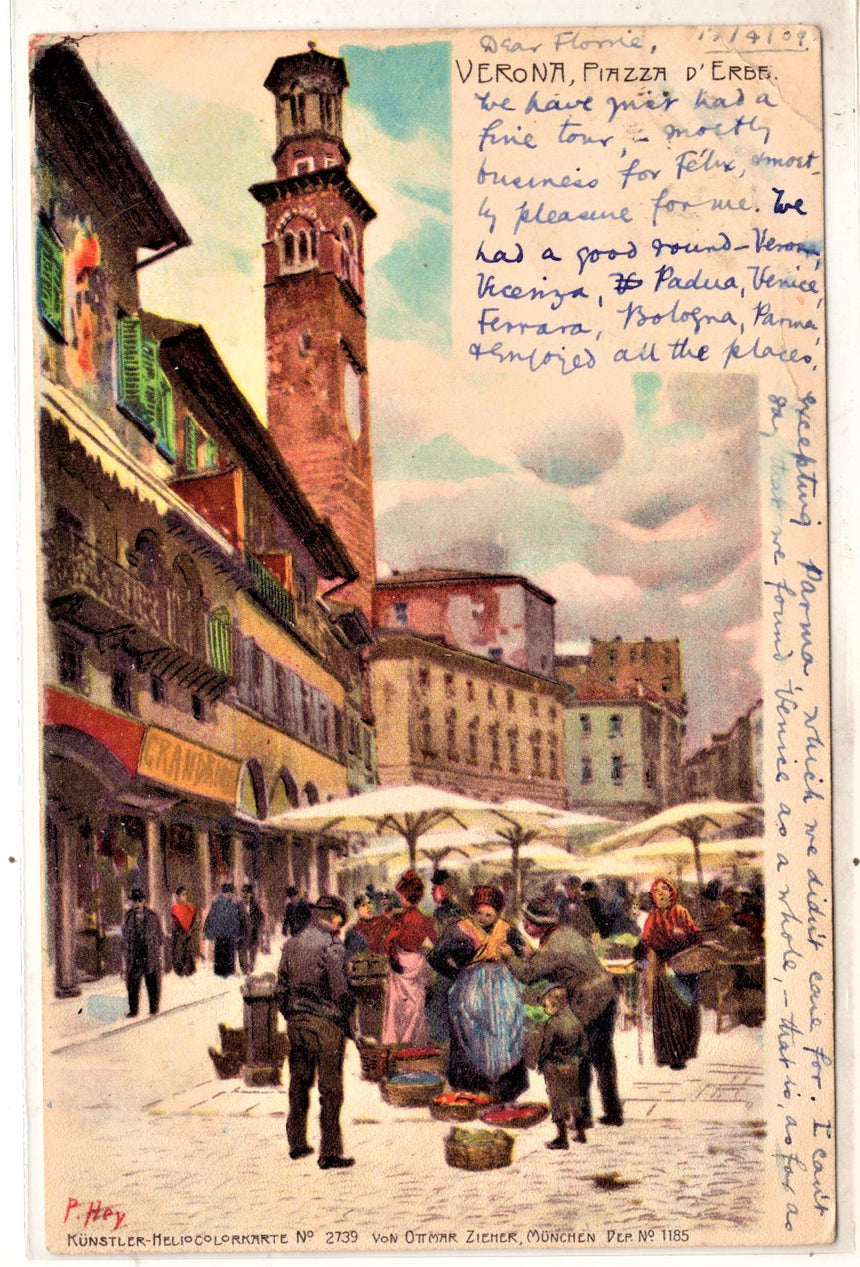 Dear Florrie,
17/4/09.
VERONA, PIAZZA D'ERBE.
We have just had a
fine tour, – mostly
business for Félix, & most-
ly pleasure for me. We
had a good round – Verona,
Vicenza, Padua, Venice,
Ferrara, Bologna, Parma,
& enjoyed all the places.
excepting Parma which we didn't care for. I can't
say that we found Venice as a whole, – that is, as far as
GRANDRIO
P. Hey
KÜNSTLER-HELIOCOLORKARTE Nº 2739 VON OTTMAR ZIEHER, MÜNCHEN DEP. Nº 1185